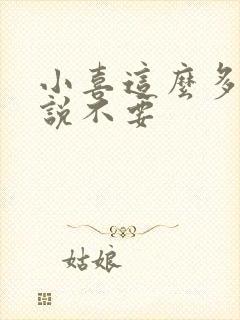 小喜這麼多
說不要
姑娘